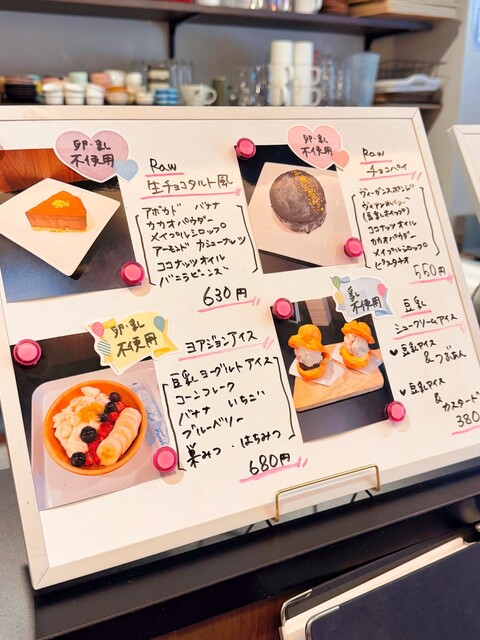 卵・乳
不使用
Raw
生チョコタルト風
アボカド バナナ
カカオパウダー
メイプルシロップ
アーモンド カシューナッツ
ココナッツオイル
バニラビーンズ
630円
卵・乳
不使用
Raw
チョコパイ
(豆乳ホイップ)
ココナッツオイル
カカオパウダー
メイプルシロップ
ピスタチオ
550円
卵・乳
不使用
ヨアジョンアイス
豆乳ヨーグルトアイス
コーンフレーク
バナナ いちご
ブルーベリー
巣みつ・はちみつ
680円
乳
不使用
豆乳
シュークリームアイス
♥豆乳アイス
&つぶあん
♥豆乳アイス
&
カスタード
380